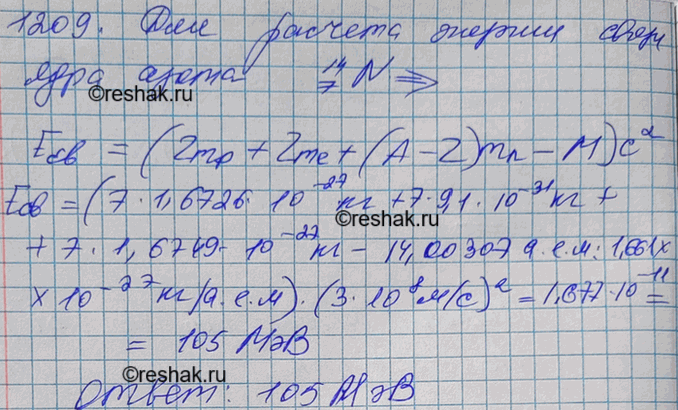 1209. Для расчета энергии связи
ядра азота ¹⁴₇N ⇒
©reshak.ru
Eсв = (Zmp + Zme + (A − Z)mn − M)c²
Eсв = (7·1,6726·10⁻²⁷кг + 7·9,1·10⁻³¹кг +
©reshak.ru
+ 7·1,6749·10⁻²⁷кг − 14,00307 а.е.м·1,661×
× 10⁻²⁷кг/а.е.м)·(3·10⁸м/с)² = 1,677·10⁻¹¹ =
= 105 МэВ
©reshak.ru
Ответ: 105 МэВ